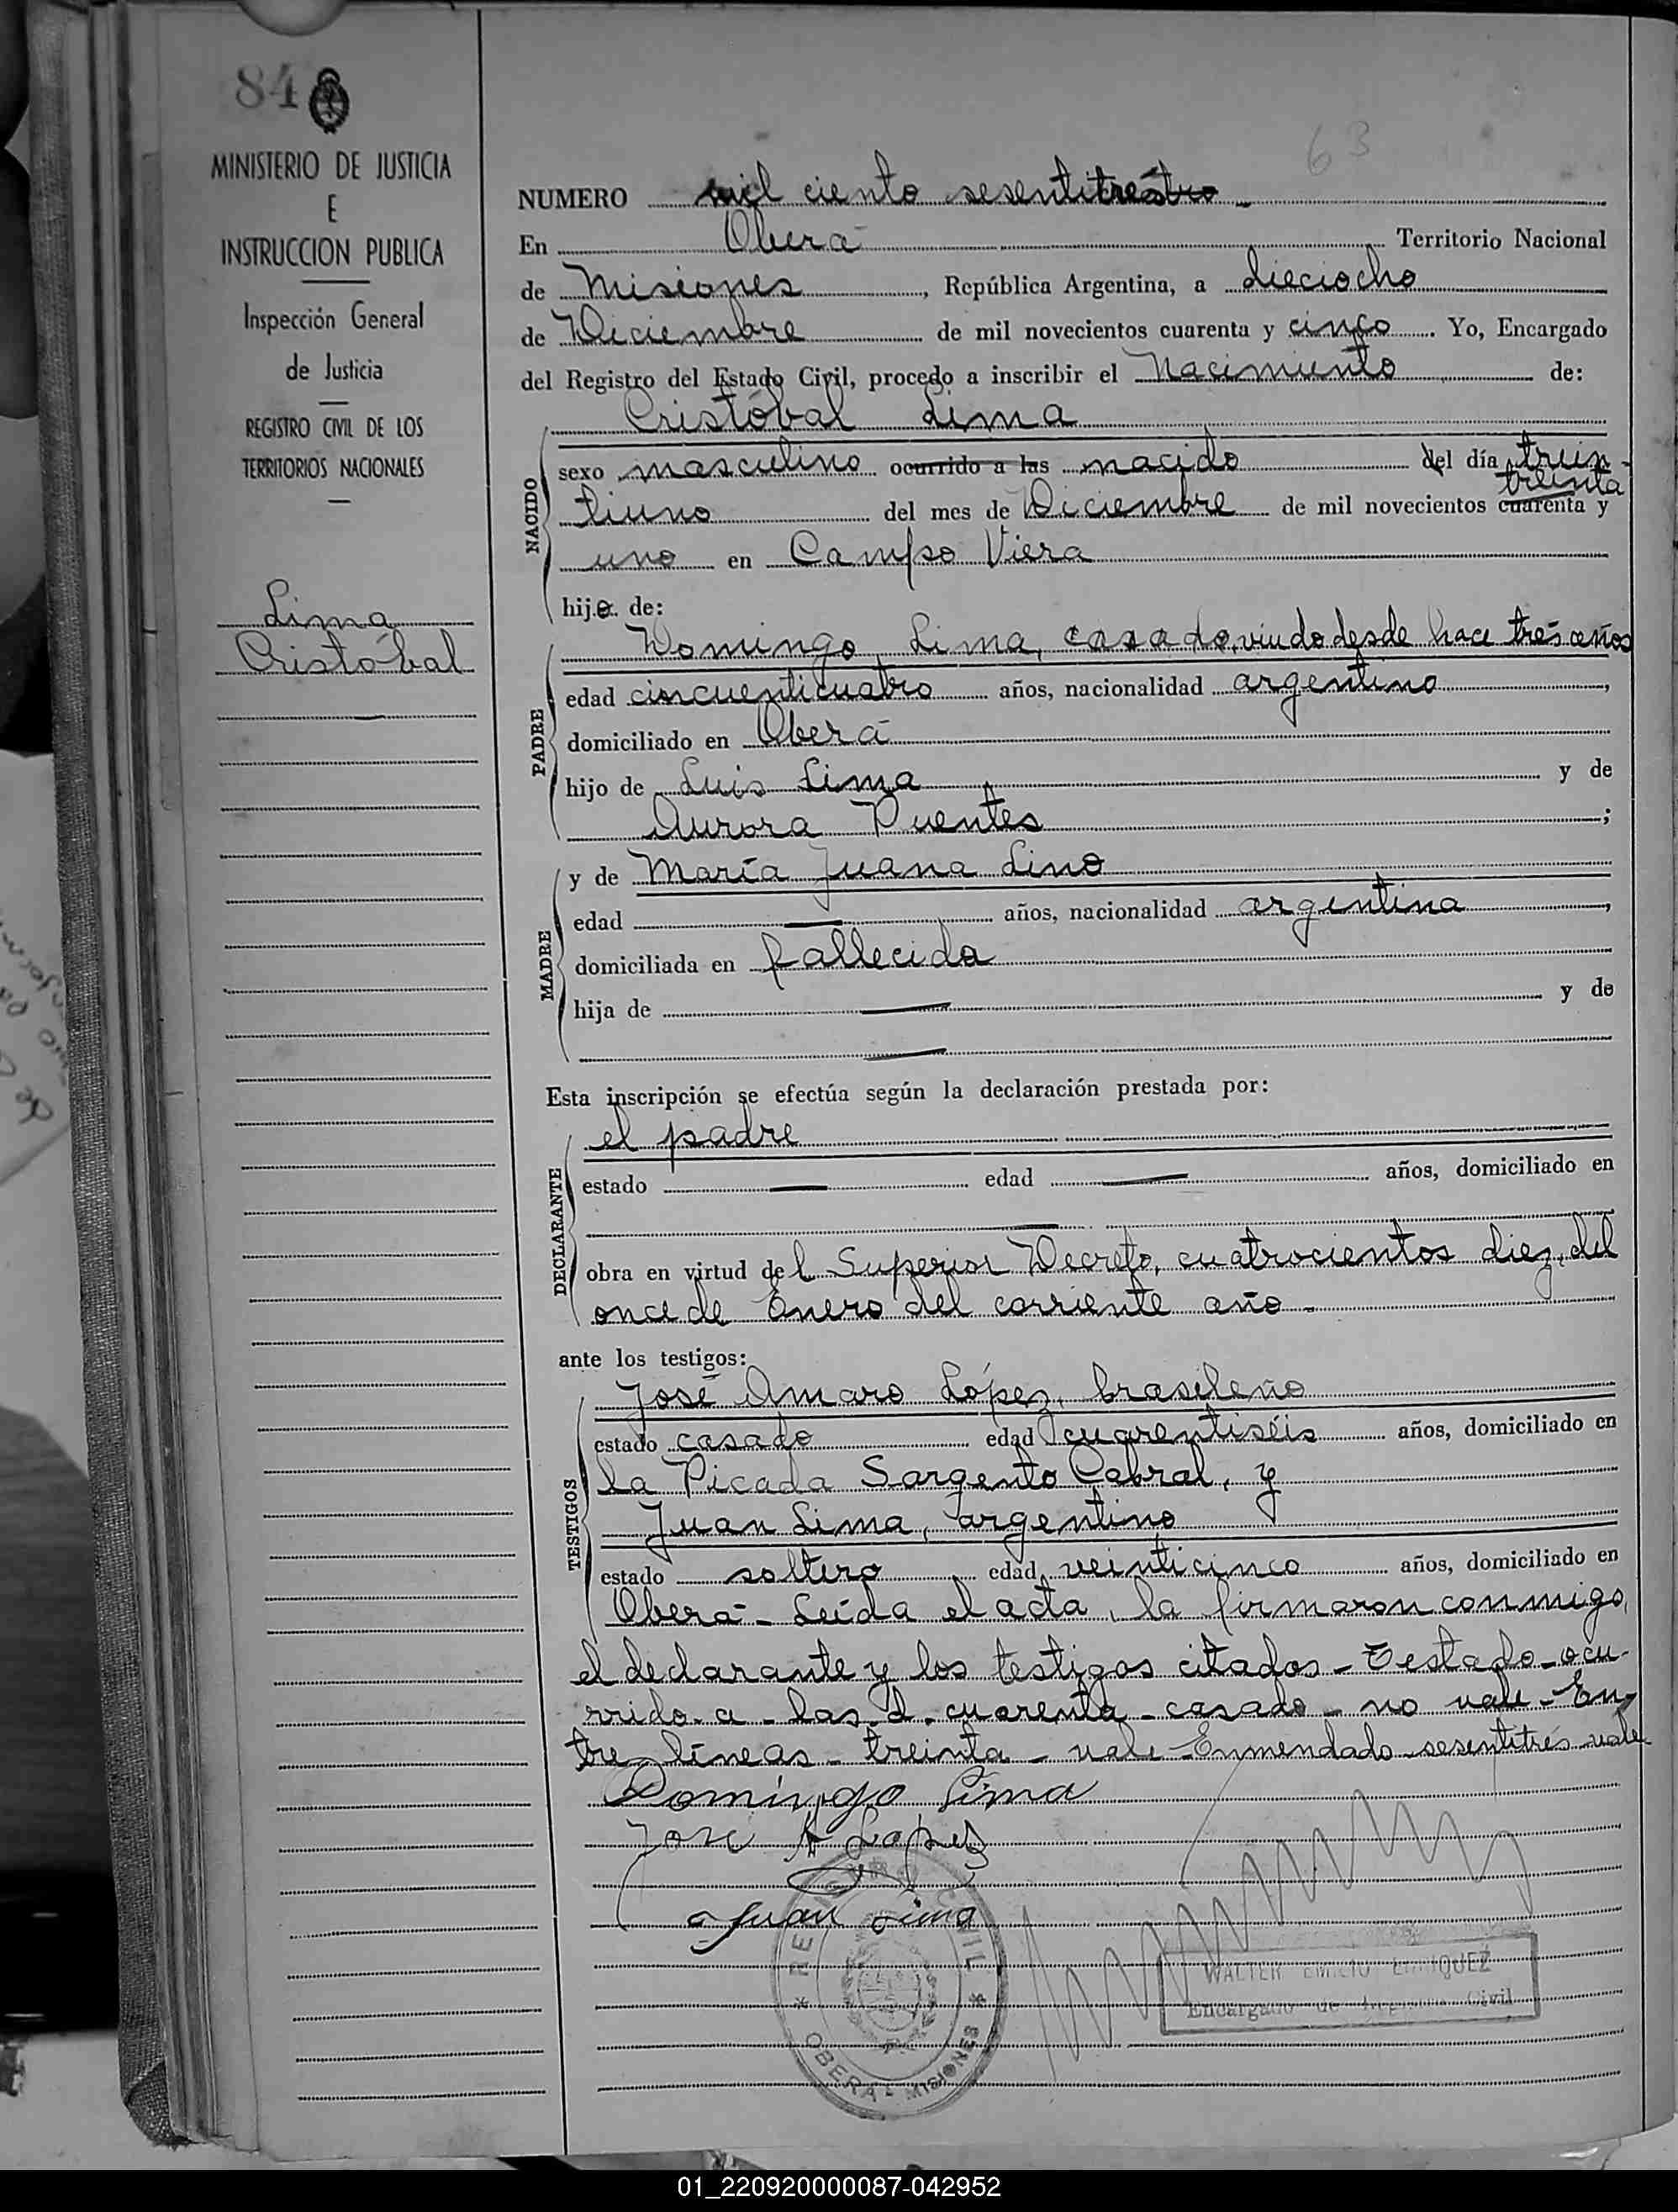 84
MINISTERIO DE JUSTICIA
E
INSTRUCCION PUBLICA
Inspección General
de Justicia
REGISTRO CIVIL DE LOS
TERRITORIOS NACIONALES
Lima
Cristóbal
63
NUMERO mil ciento sesentitrés
En Oberá Territorio Nacional
de Misiones, República Argentina, a dieciocho
de Diciembre de mil novecientos cuarenta y cinco. Yo, Encargado
del Registro del Estado Civil, procedo a inscribir el Nacimiento de:
Cristóbal Lima
NACIDO
sexo masculino ocurrido a las nacido del día trein-
treinta
tiuno del mes de Diciembre de mil novecientos cuarenta y
uno en Campo Viera
hijo de:
PADRE
Domingo Lima, casado, viudo desde hace tres años
edad cincuenticuatro años, nacionalidad argentino,
domiciliado en Oberá
hijo de Luis Lima y de
Aurora Puentes;
MADRE
y de María Juana Lino
edad — años, nacionalidad argentina,
domiciliada en fallecida
hija de — y de
—
Esta inscripción se efectúa según la declaración prestada por:
DECLARANTE
el padre
estado — edad — años, domiciliado en
—
obra en virtud del Superior Decreto, cuatrocientos diez, del
once de Enero del corriente año.
ante los testigos:
TESTIGOS
José Amaro López, brasileño
estado casado edad cuarentiséis años, domiciliado en
la Picada Sargento Cabral, y
Juan Lima, argentino
estado soltero edad veinticinco años, domiciliado en
Oberá - Leída el acta, la firmaron conmigo,
el declarante y los testigos citados - Testado - ocu-
rrido - a - las - d - cuarenta - casado - no vale - En-
tre líneas - treinta - vale - Enmendado - sesentitrés - vale
Domingo Lima
Jose A Lopez
Juan Lima
REGISTRO CIVIL
* OBERA - MISIONES *
WALTER EMILIO ENRIQUEZ
Encargado de Registro Civil
01_220920000087-042952